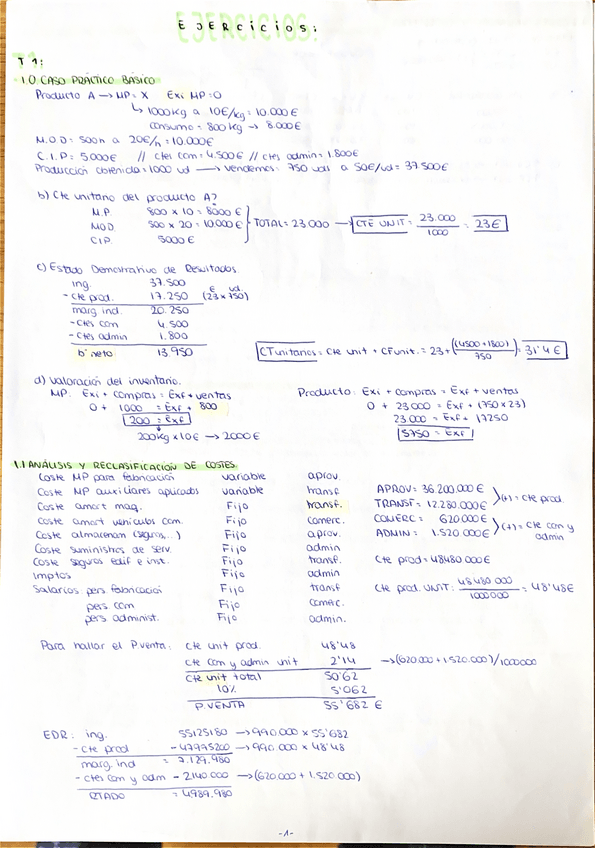 EJERCICIOS:
T1:
1.0. CASO PRÁCTICO BÁSICO
Producto A → MP = X Exi MP = 0
↳ 1000 kg a 10€/kg = 10.000€
consumo = 800 kg → 8.000€
M.O.D: 500h a 20€/h = 10.000€
C.I.P = 5000€ // ctes com = 4.500€ // ctes admin = 1.800€
Producción obtenida = 1000 ud → vendemos: 750 uds a 50€/ud = 37.500€
b) Cte unitario del producto A?
M.P. 800 x 10 = 8000€
MOD 500 x 20 = 10.000€
CIP 5000€
TOTAL = 23.000 → CTE UNIT = 23.000 / 1000 = 23€
c) Estado Demostrativo de Resultados.
ing. 37.500
- cte prod. 17.250 (23€ x 750 ud.)
marg ind. 20.250
- ctes com 4.500
- ctes admin 1.800
bº neto 13.950
CT unitarios = cte unit + CF unit. = 23 + ((4500+1800) / 750) = 31'4€
d) Valoración del inventario.
MP. Exi + compras = Exf + ventas
0 + 1000 = Exf + 800
200 = Exf
200 kg x 10€ → 2000€
Producto: Exi + compras = Exf + ventas
0 + 23.000 = Exf + (750 x 23)
23.000 = Exf + 17250
5750 = Exf
1.1 ANÁLISIS Y RECLASIFICACIÓN DE COSTES.
Coste MP para fabricación variable aprov.
Coste MP auxiliares aplicados variable transf.
Coste amort maq. Fijo transf.
Coste amort vehículos com. Fijo comerc.
Coste almacenam (seguros,...) Fijo aprov.
Coste suministros de serv. Fijo admin
Coste seguros edif e inst. Fijo transf.
Imptos Fijo admin
Salarios: pers. fabricación Fijo transf
pers com Fijo comerc.
pers administ. Fijo admin.
APROV = 36.200.000€
TRANSF = 12.280.000€
(+) = cte prod.
COMERC = 620.000€
ADMIN = 1.520.000€
(+) = cte com y admin
Cte prod = 48480.000€
Cte prod. UNIT: 48480.000 / 1000000 = 48'48€
Para hallar el P.venta: cte unit prod. 48'48
cte com y admin unit 2'14 → (620.000 + 1.520.000)/1000000
cte unit total 50'62
10% 5'062
P.VENTA 55'682 €
EDR: ing. 55125180 → 990.000 x 55'682
- cte prod - 47995200 → 990.000 x 48'48
marg. ind = 7.129.980
- ctes com y adm - 2140.000 → (620.000 + 1.520.000)
RTADO = 4989.980
-1-